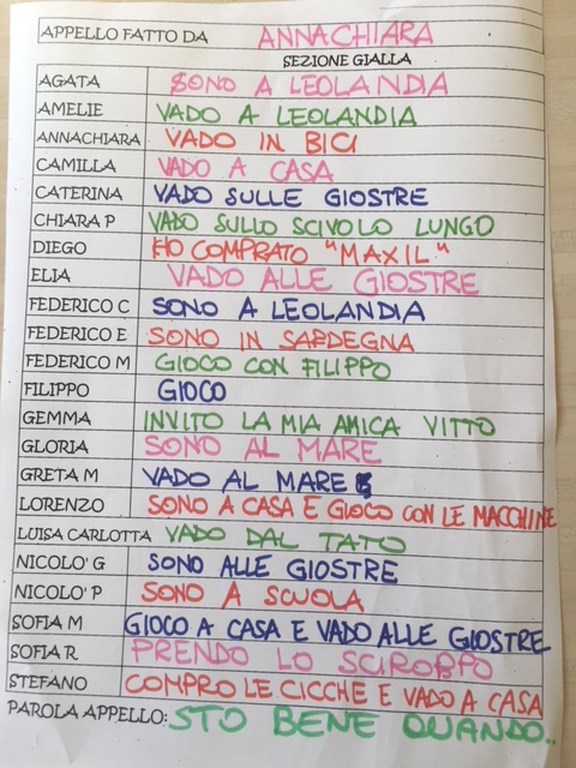 APPELLO FATTO DA ANNACHIARA
SEZIONE GIALLA
AGATA SONO A LEOLANDIA
AMELIE VADO A LEOLANDIA
ANNACHIARA VADO IN BICI
CAMILLA VADO A CASA
CATERINA VADO SULLE GIOSTRE
CHIARA P VADO SULLO SCIVOLO LUNGO
DIEGO HO COMPRATO "MAXIL"
ELIA VADO ALLE GIOSTRE
FEDERICO C SONO A LEOLANDIA
FEDERICO E SONO IN SARDEGNA
FEDERICO M GIOCO CON FILIPPO
FILIPPO GIOCO
GEMMA INVITO LA MIA AMICA VITTO
GLORIA SONO AL MARE
GRETA M VADO AL MARE
LORENZO SONO A CASA E GIOCO CON LE MACCHINE
LUISA CARLOTTA VADO DAL TATO
NICOLO' G SONO ALLE GIOSTRE
NICOLO' P SONO A SCUOLA
SOFIA M GIOCO A CASA E VADO ALLE GIOSTRE
SOFIA R PRENDO LO SCIROPPO
STEFANO COMPRO LE CICCHE E VADO A CASA
PAROLA APPELLO: STO BENE QUANDO..